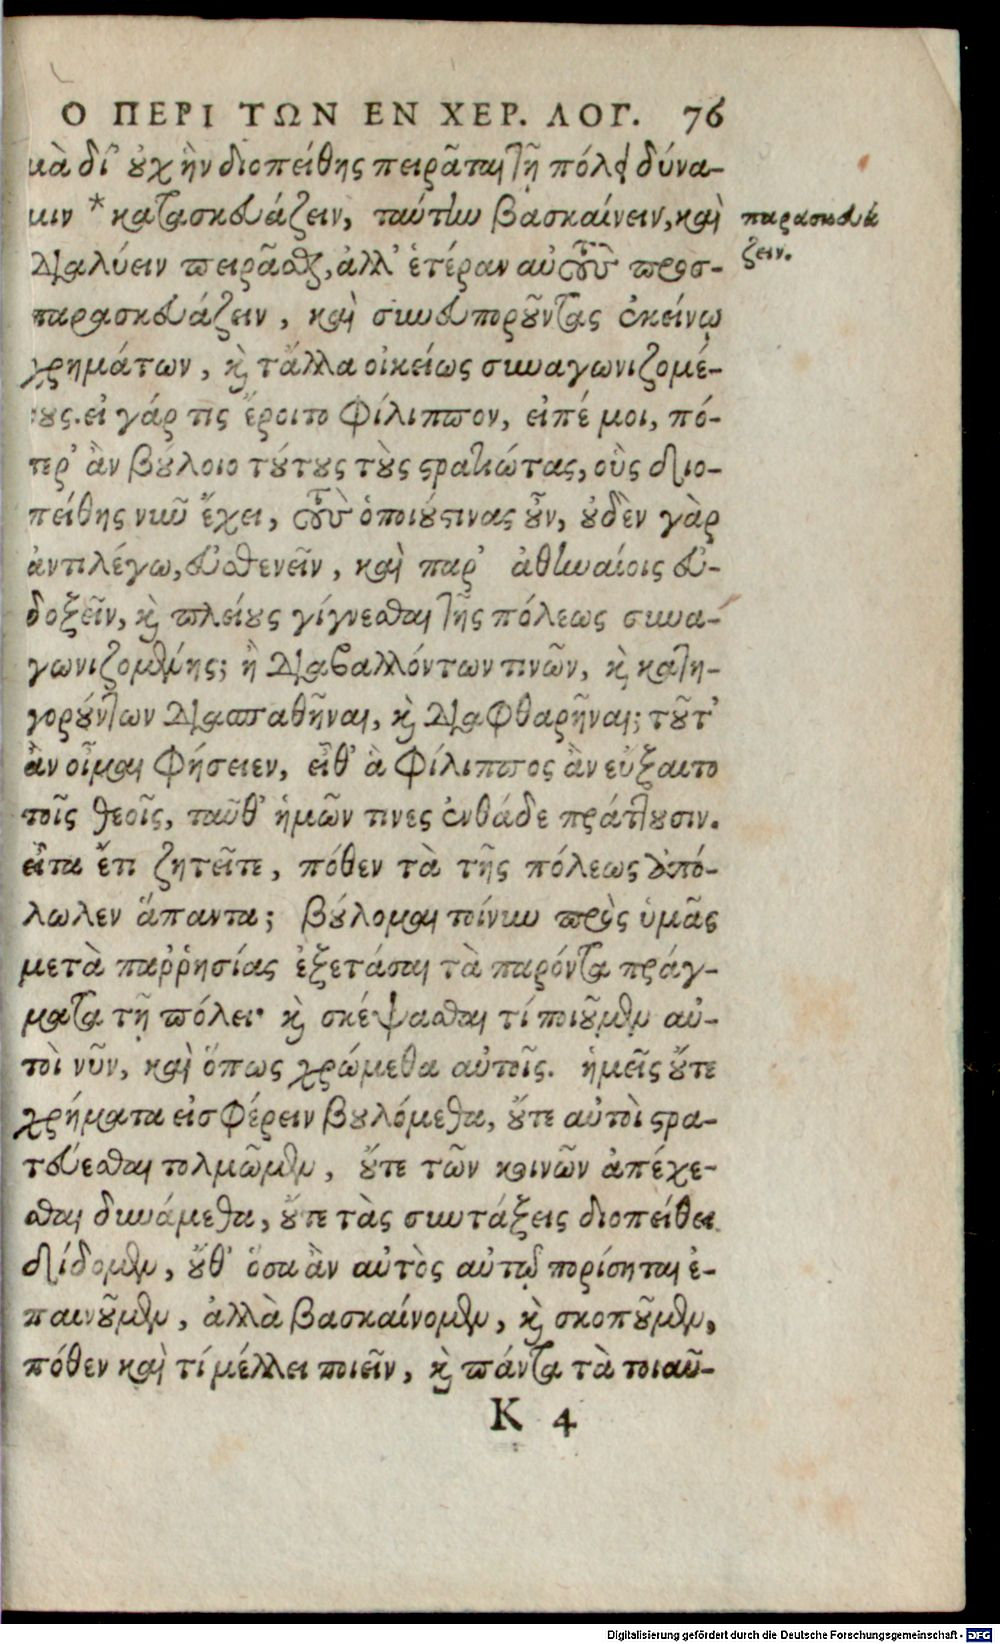 Ο ΠΕΡΙ ΤΩΝ ΕΝ ΧΕΡ. ΛΟΓ. 76
κὰ δι' οὐχ ἣν διοπείθης πειρᾶται τῇ πόλει δύνα-
μιν * κατασκευάζειν, ταύτην βασκαίνειν, καὶ
διαλύειν πειρᾶσθαι, ἀλλ' ἑτέραν αὐτοὺς προσ-
παρασκευάζειν, καὶ συνευποροῦντας ἐκείνῳ
χρημάτων, καὶ τἄλλα οἰκείως συναγωνιζομέ-
νους. εἰ γάρ τις ἔροιτο Φίλιππον, εἰπέ μοι, πό-
τερ' ἂν βούλοιο τούτους τοὺς στρατιώτας, οὓς διο-
πείθης νῦν ἔχει, τοὺς ὁποιούστινας οὖν, οὐδὲν γὰρ
ἀντιλέγω, εὐσθενεῖν, καὶ παρ' ἀθηναίοις εὐ-
δοξεῖν, καὶ πλείους γίγνεσθαι τῆς πόλεως συνα-
γωνιζομένης; ἢ διαβαλλόντων τινῶν, καὶ κατη-
γορούντων διασπαθῆναι, καὶ διαφθαρῆναι; τοῦτ'
ἂν οἶμαι φήσειεν, εἶθ' ἃ Φίλιππος ἂν εὔξαιτο
τοῖς θεοῖς, ταῦθ' ἡμῶν τινες ἐνθάδε πράττουσιν.
εἶτα ἔτι ζητεῖτε, πόθεν τὰ τῆς πόλεως ἀπό-
λωλεν ἅπαντα; βούλομαι τοίνυν πρὸς ὑμᾶς
μετὰ παῤῥησίας ἐξετάσαι τὰ παρόντα πράγ-
ματα τῇ πόλει· καὶ σκέψασθαι τί ποιοῦμεν αὐ-
τοὶ νῦν, καὶ ὅπως χρώμεθα αὐτοῖς. ἡμεῖς οὔτε
χρήματα εἰσφέρειν βουλόμεθα, οὔτε αὐτοὶ στρα-
τεύεσθαι τολμῶμεν, οὔτε τῶν κοινῶν ἀπέχε-
σθαι δυνάμεθα, οὔτε τὰς συντάξεις διοπείθει
δίδομεν, οὔθ' ὅσα ἂν αὐτὸς αὑτῷ πορίσηται ἐ-
παινοῦμεν, ἀλλὰ βασκαίνομεν, καὶ σκοποῦμεν,
πόθεν καὶ τί μέλλει ποιεῖν, καὶ πάντα τὰ τοιαῦ-
K 4
παρασκευά
ζειν.
Digitalisierung gefördert durch die Deutsche Forschungsgemeinschaft - DFG